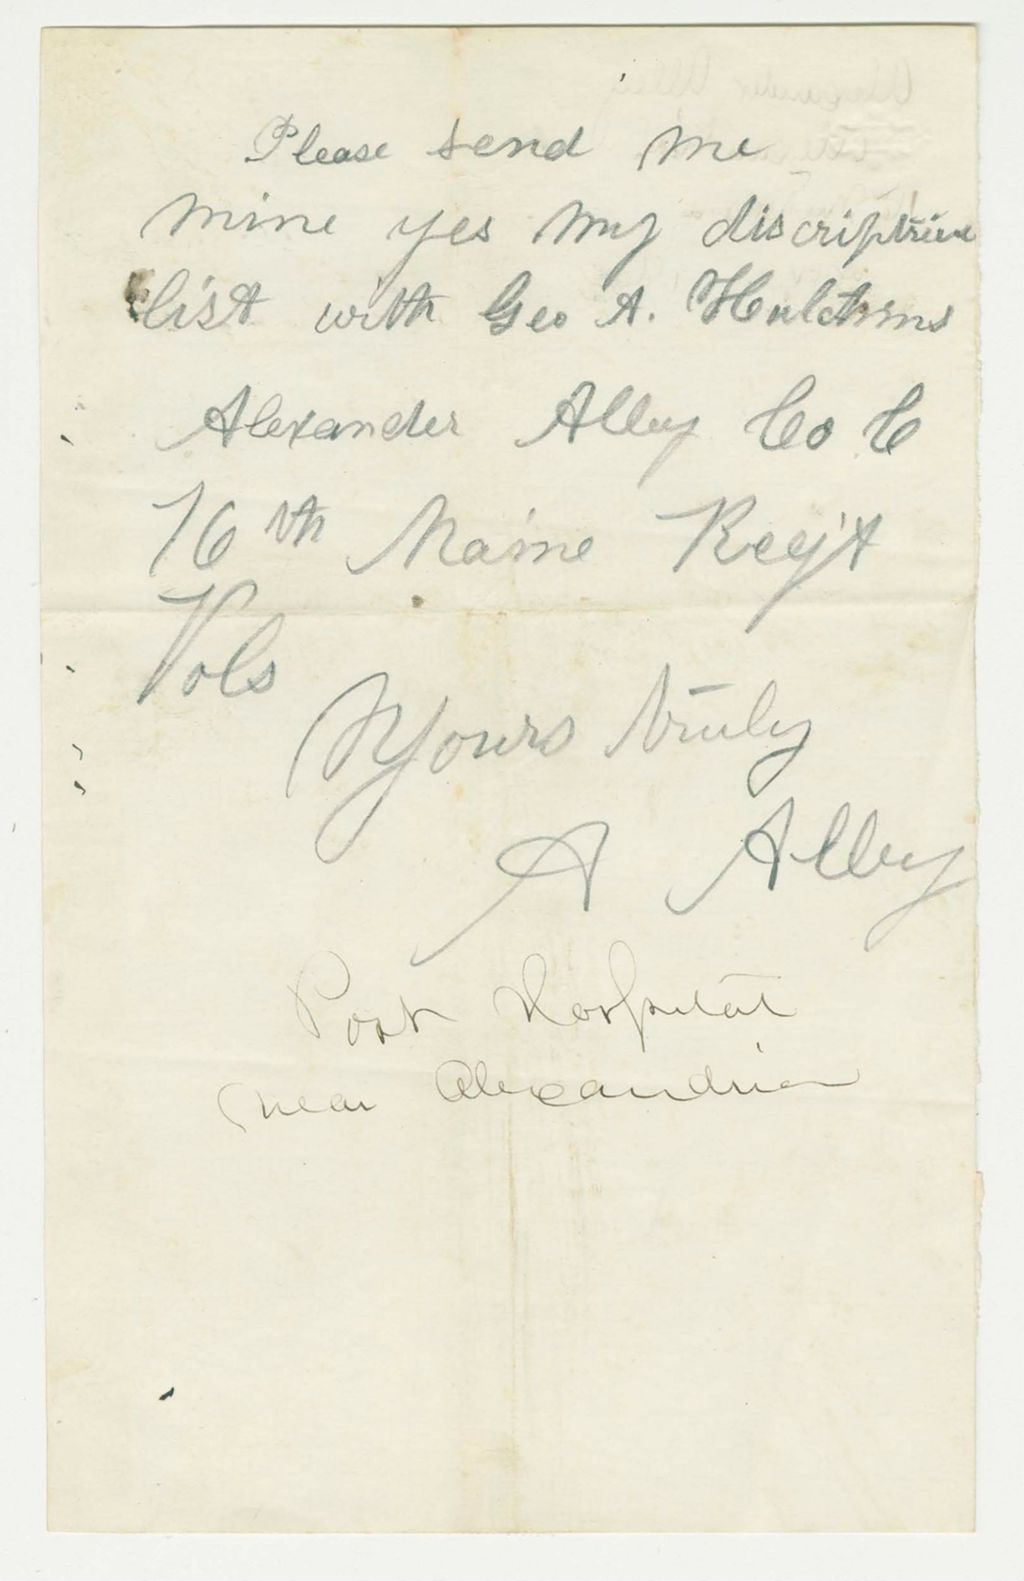 Please send me
mine yes my discriptive
list with Geo A. Hutchins
Alexander Alley Co C
16th Maine Reg't
Vols
Yours truly
A Alley
Post Hospital
near Alexandria